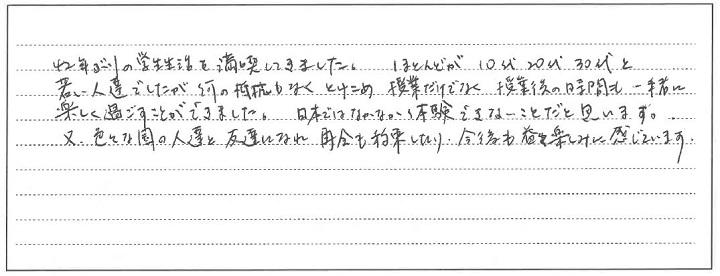 42年ぶりの学生生活を満喫してきました。 ほとんどが 10代 20代 30代と
若い人達でしたが 何の抵抗もなく とけこめ 授業だけでなく 授業後の時間も 一緒に
楽しく過ごすことができました。 日本ではなかなか体験できないことだと思います。
又、色々な国の人達と 友達になれ 再会も約束したり、今後も益々楽しみに感じています。